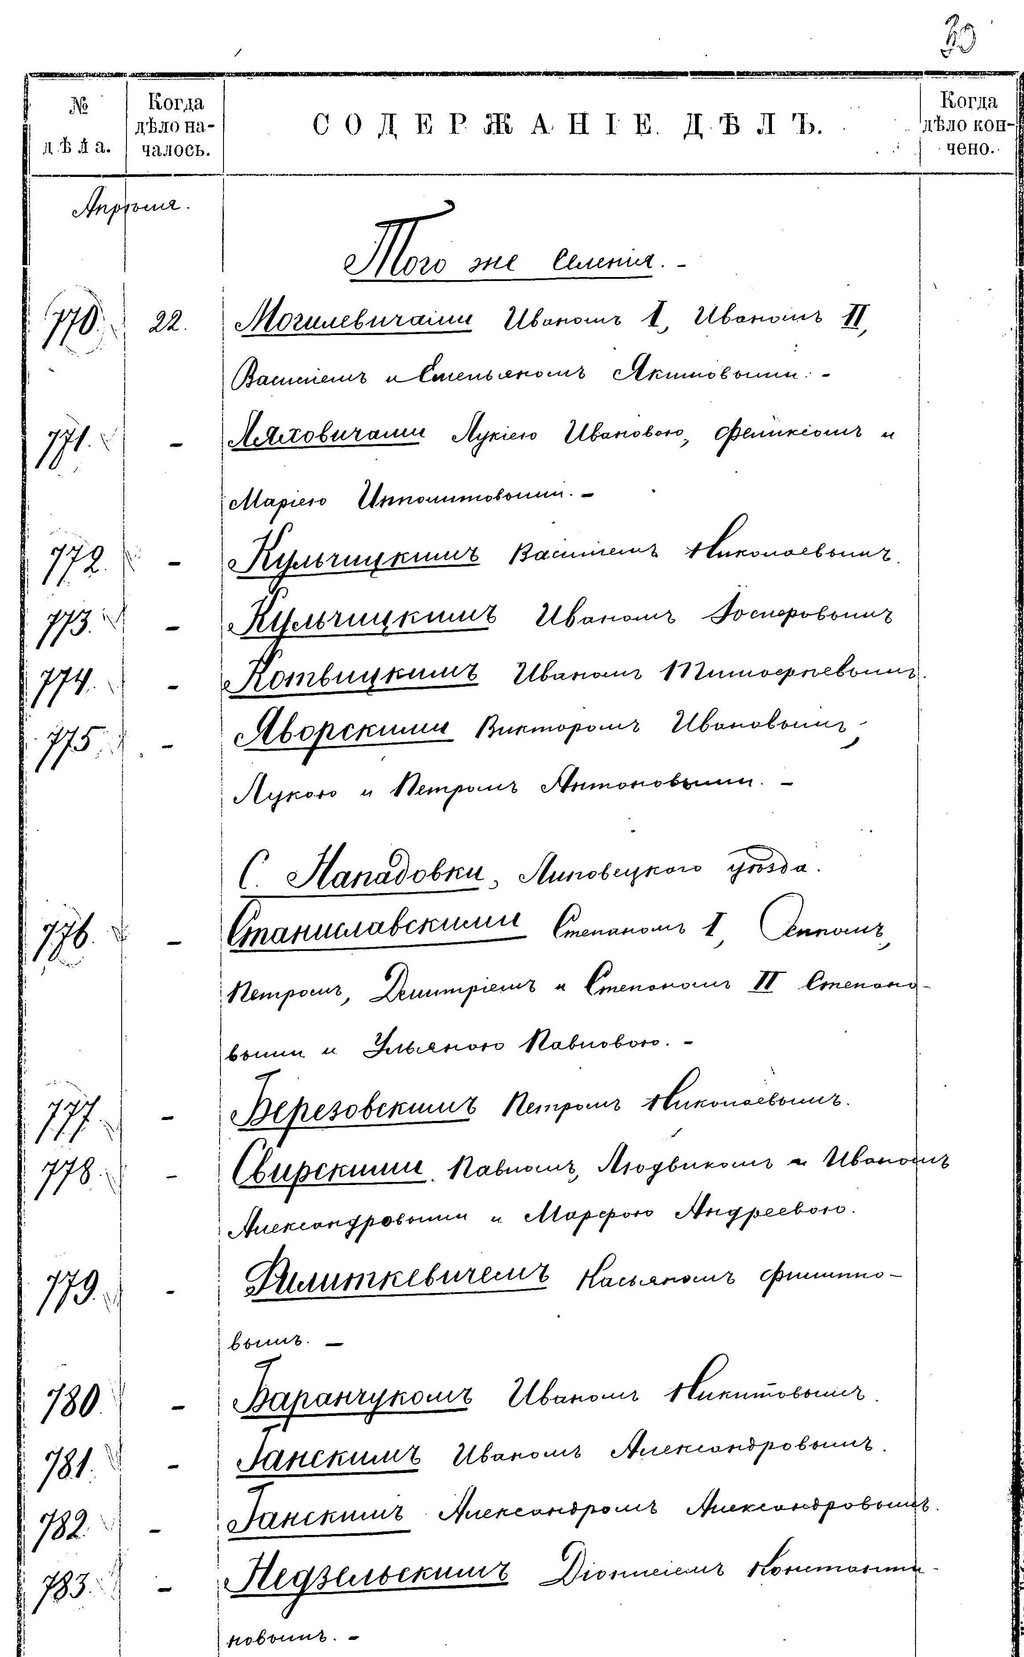 30
№ дѣла. Когда дѣло началось. СОДЕРЖАНІЕ ДѢЛЪ. Когда дѣло кончено.
Апрѣля.
Того же селенія. -
770. 22. Могилевичами Иваномъ I, Иваномъ II,
Василіемъ и Емельяномъ Якимовыми. -
771. - Ляховичами Лукіею Ивановою, Феликсомъ и
Маріею Ипполитовыми. -
772. - Кульчицкимъ Василіемъ Николаевымъ.
773. - Кульчицкимъ Иваномъ Іосифовымъ
774. - Котвицкимъ Иваномъ Тимофѣевымъ.
775. - Яворскими Викторомъ Ивановымъ,
Лукою и Петромъ Антоновыми. -
С. Нападовки, Липовецкого уѣзда.
776. - Станиславскими Степаномъ I, Осипомъ,
Петромъ, Димитріемъ и Степаномъ II Степано-
выми и Ульяною Павловою. -
777. - Березовскимъ Петромъ Николаевымъ.
778. - Свирскими Павломъ, Людвикомъ и Иваномъ
Александровыми и Марфою Андреевою.
779. - Филиткевичемъ Касьяномъ Филиппо-
вымъ. -
780. - Баранчукомъ Иваномъ Никитовымъ.
781. - Ганскимъ Иваномъ Александровымъ.
782. - Ганскимъ Александромъ Александровымъ.
783. - Недзельскимъ Діонисіемъ Константи-
новымъ. -